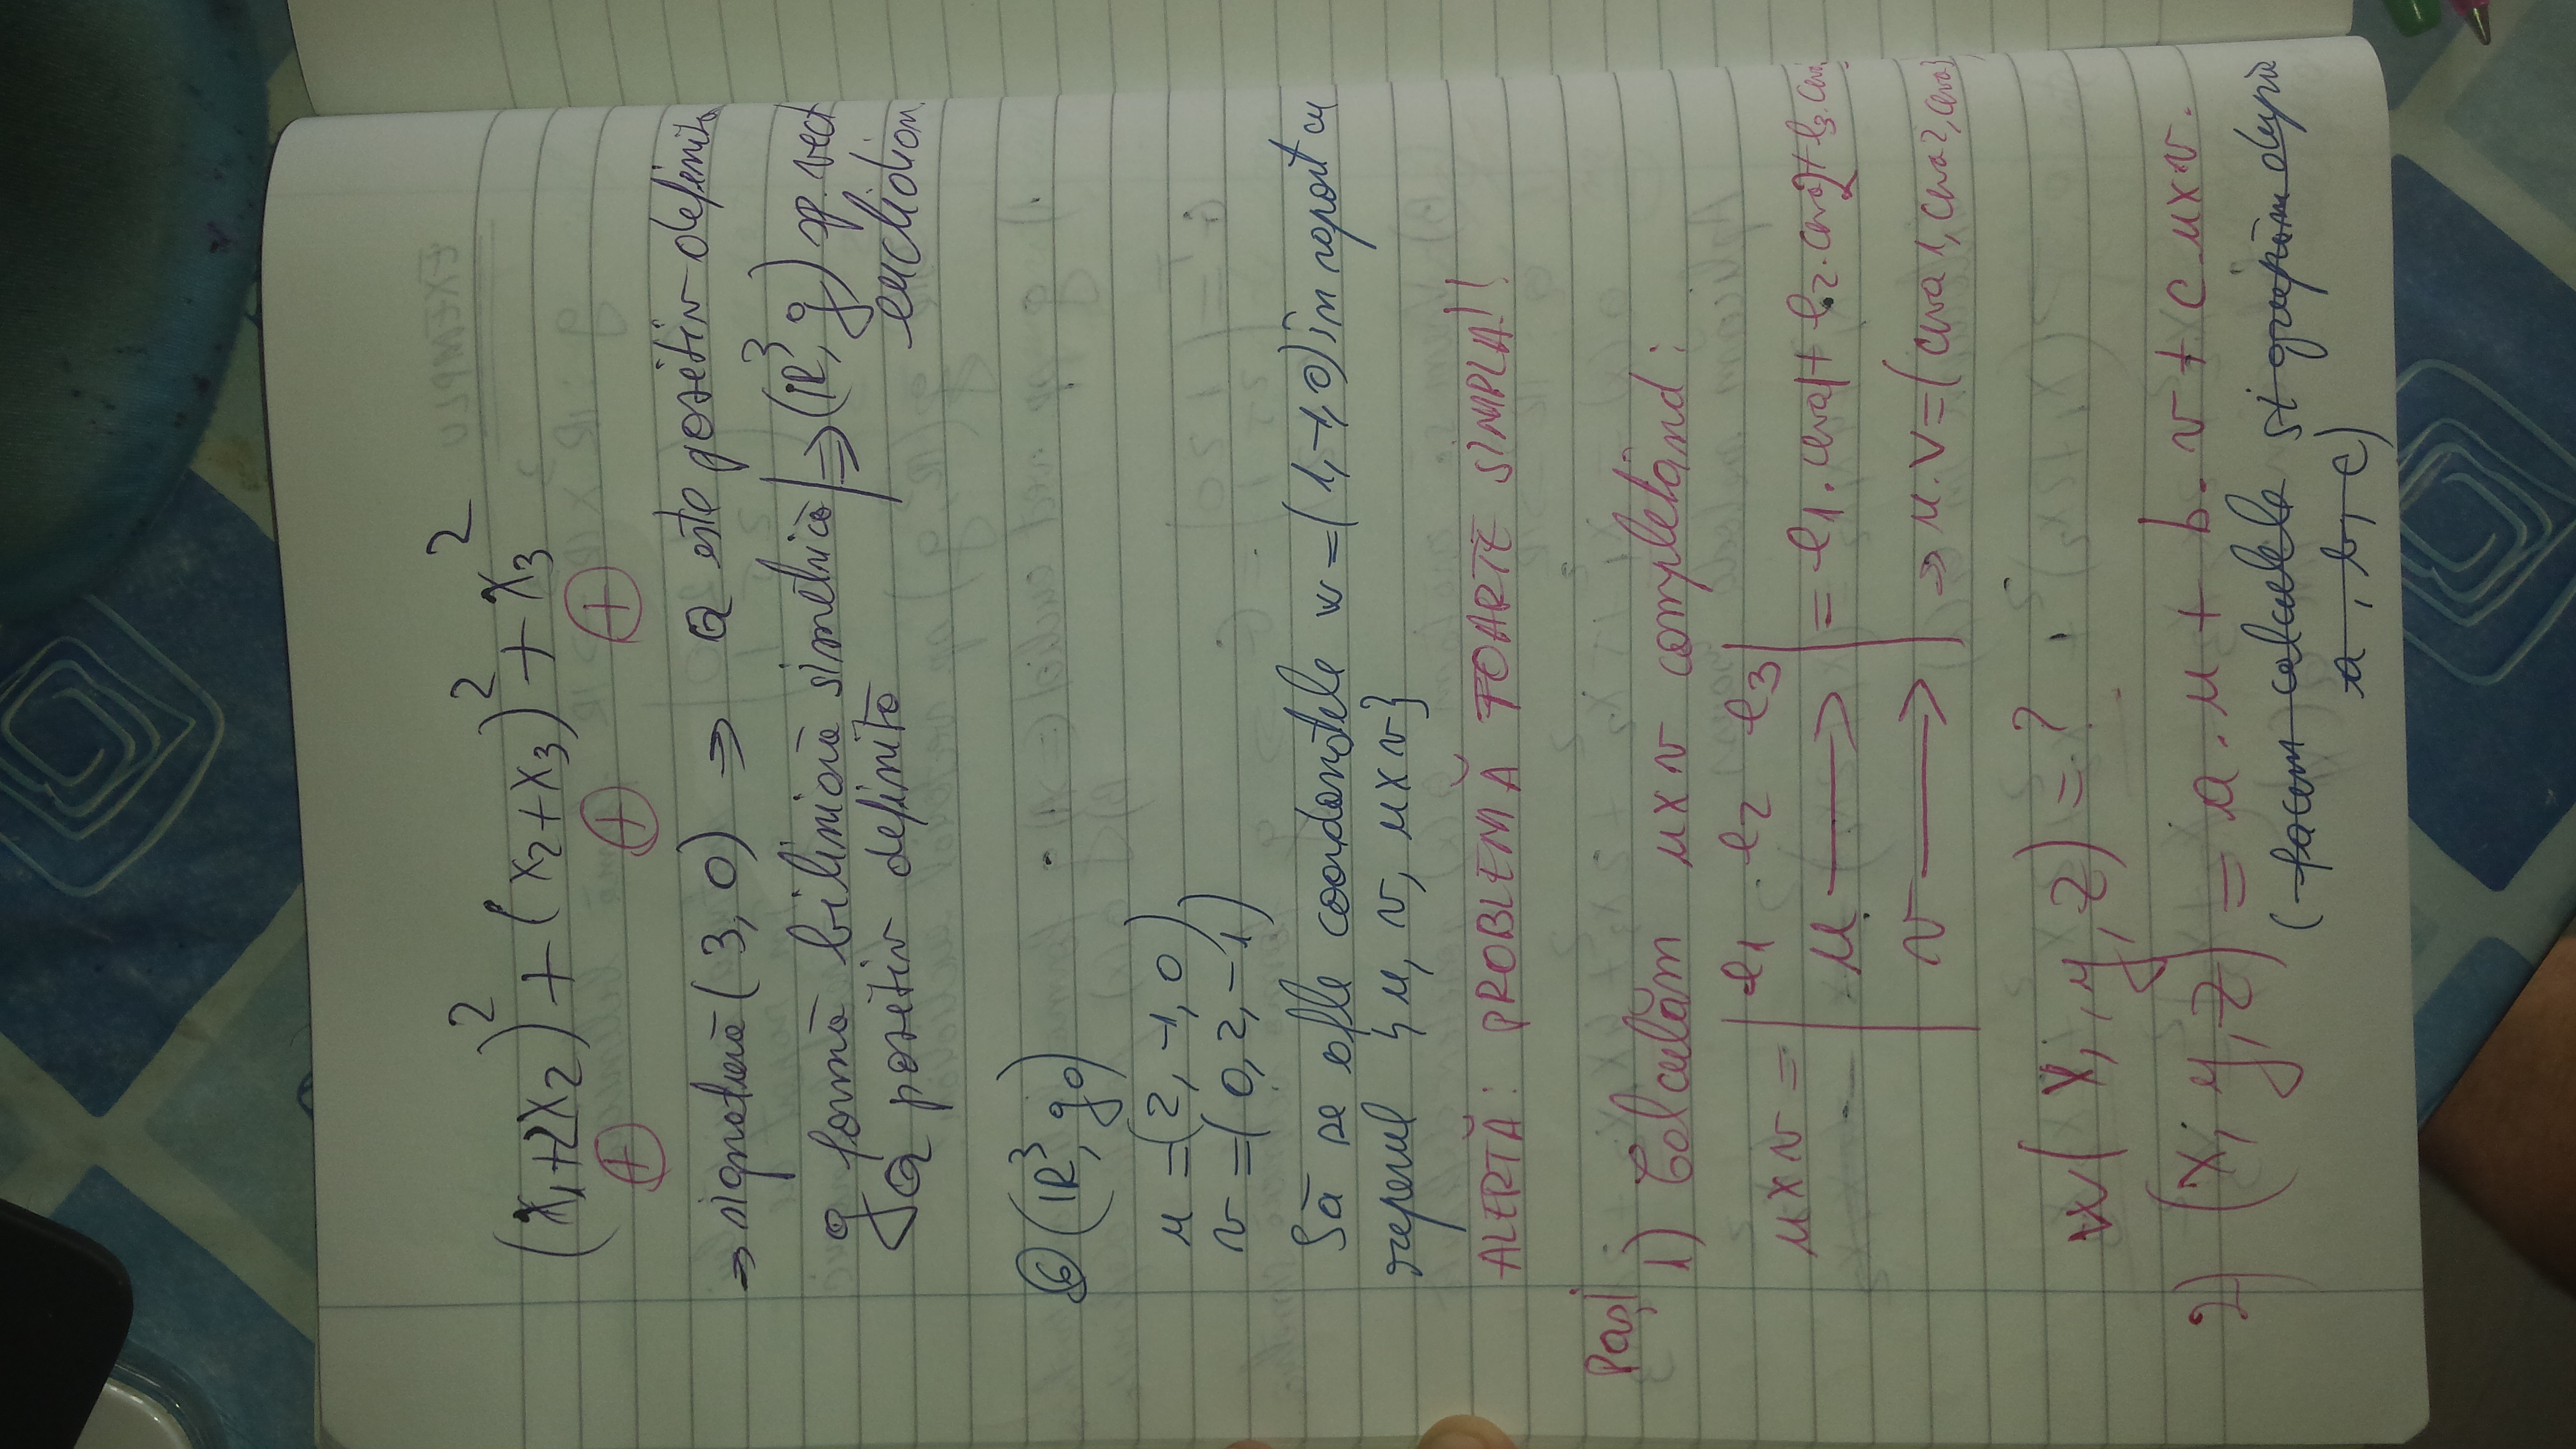 (x₁+2x₂)² + (x₂+x₃)² + x₃²
⊕ ⊕ ⊕
⇒ signatură (3, 0) ⇒ Q este pozitiv definită
g formă biliniară simetrică | ⇒ (ℝ³, g) sp. vect
Q pozitiv definită euclidian.
⑥ (ℝ³, g₀)
u = (2, -1, 0),
v = (0, 2, -1)
Să se afle coordonatele w = (1, -1, 0) în raport cu
reperul {u, v, u×v}
ALERTĂ: PROBLEMĂ FOARTE SIMPLA!!
Pași
1) Calculăm u×v completând:
u×v = | e1 e2 e3 |
| u ⟶ | = e1. ceva1 + e2. ceva2 + e3. ceva
| v ⟶ | ⇒ u.v = (ceva 1, ceva 2, ceva3
w( x, , y, z) = ?
2) (x, y, z) = a. u + b. v + c. u×v.
(facem calculele și grupăm după
a , b, c)